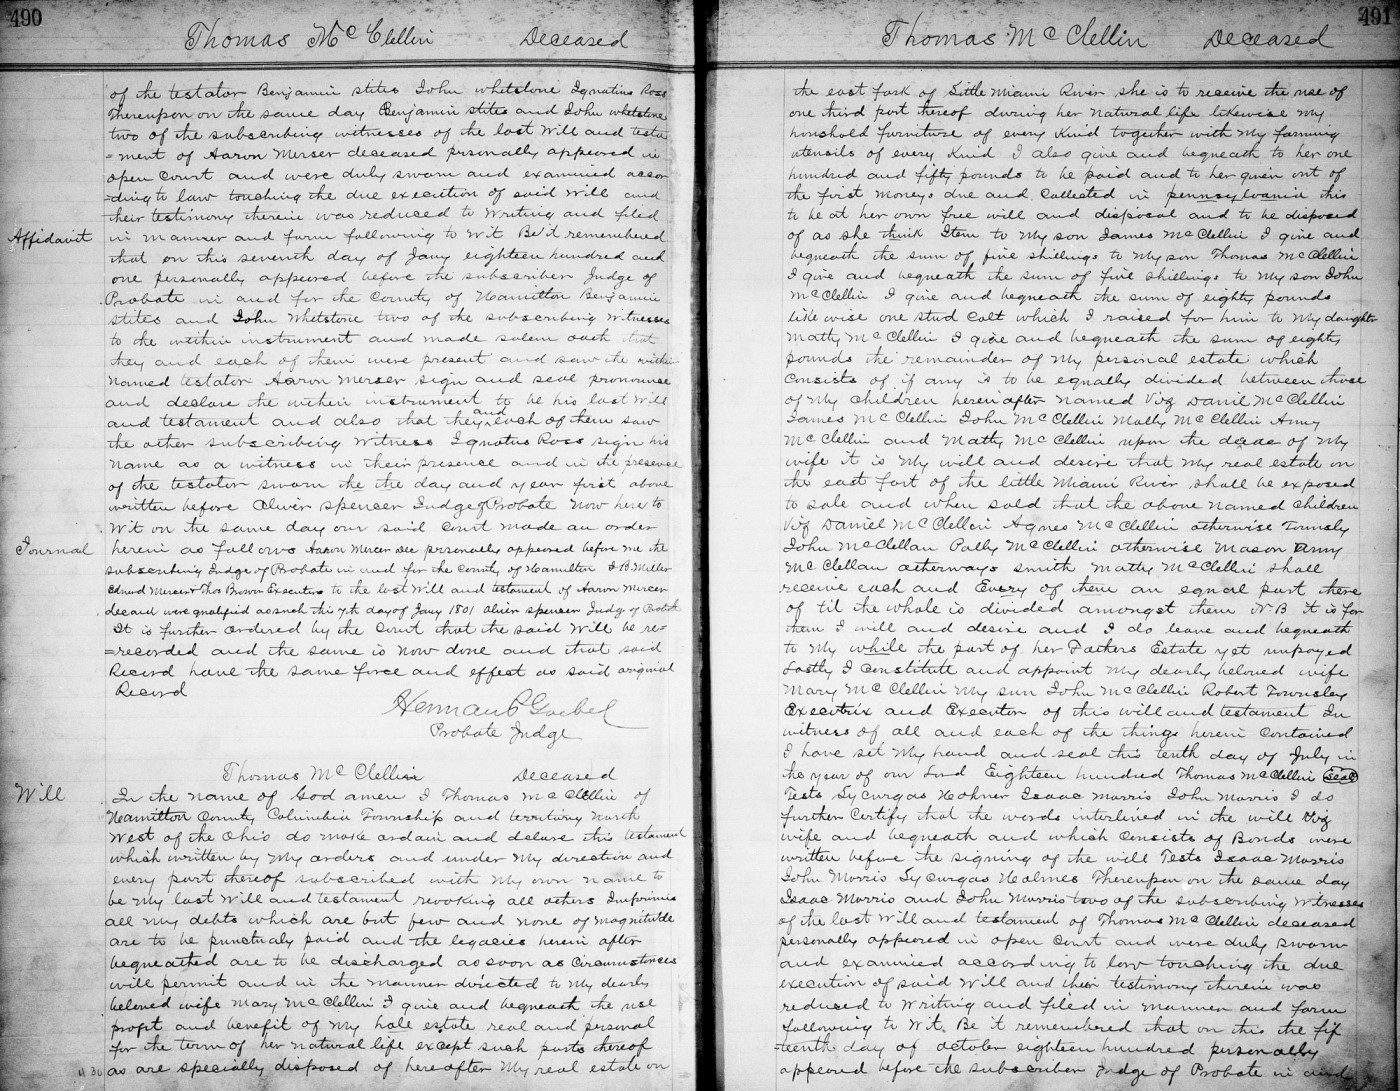 490
Thomas McClellin Deceased
of the testator Benjamin stites John whetstone Ignatius Ross
Thereupon on the same day Benjamin stites and John whetstone
two of the subscribing witnesses of the last Will and testa
=ment of Aaron Merser deceased personally appeared in
open Court and were duly sworn and examined accor
=ding to law touching the due execution of said Will and
their testimony therein was reduced to Writing and filed
Affidavit
in manner and form following to wit Be it remembered
that on this seventh day of Jany eighteen hundred and
one personally appeared before the subscriber Judge of
Probate in and for the County of Hamilton Benjamin
stites and John Whetstone two of the subscribing Witnesses
to the within instrument and made solem oath that
they and each of them were present and saw the within
Named testator Aaron Merser sign and seal pronounce
and declare the within instrument to be his last Will
and testament and also that they and each of them saw
the other subscribing Witness Ignatus Ross sign his
Name as a witness in their presence and in the presence
of the testator sworn the the day and year first above
written before Oliver spencer Judge of Probate Now here to
Wit on the same day our said Court made an order
Journal
herein as follows Aaron Mercer Dec personally appeared before me the
subscribing Judge of Probate in and for the County of Hamilton I B. Miller
Edward Mercer & Thos Brown Executors to the last Will and testament of Aaron Mercer
decased were qualified as such this 7th day of Jany 1801 oliver spenser Judge of Probate
It is further ordered by the Court that the said Will be re=
=recorded and the same is now done and that said
Record have the same force and effect as said original
Record
Herman P Goebel
Probate Judge
Thomas McClellin Deceased
Will
In the name of God amen I Thomas McClellin of
Hamilton County Columbia Township and territory North
West of the Ohio do make ardain and delare this testament
which written by My orders and under My direction and
every part thereof subscribed with My own name to
be My last Will and testament revoking all others Imprimis
all My debts which are but few and none of magnitude
are to be punctualy paid and the legacies herein after
bequeathed are to be discharged as soon as Circumstances
will permit and in the manner directed to My dearly
beloved wife Mary McClellin I give and bequeath the use
profit and benefit of My hole estate real and personal
for the term of her natural life except such parts thereof
as are specially disposed of hereafter My real estate on
491
Thomas McClellin Deceased
the east fork of Little Miami River she is to receive the use of
one third part thereof during her natural life likewise My
houshold furniture of every Kind together with My farming
utensils of every Kind I also give and bequeath to her one
hundred and fifty pounds to be paid and to her given out of
the first Moneys due and Collected in pennsylvania this
to be at her own free will and disposal and to be disposed
of as she think Item to My son James McClellin I give and
bequeath the sum of five shillings to My son Thomas McClellin
I give and bequeath the sum of five shillings to My son John
McClellin I give and bequeath the sum of eighty pounds
like wise one stud Colt which I raised for him to My daughter
Matty McClellin I give and bequeath the sum of eighty
pounds the remainder of My personal estate which
Consists of if any is to be equally divided between those
of My children herein after named Viz Daniel McClellin
James McClellin John McClellin Matty McClellin Amy
McClellin and Matty McClellin upon the deceae of My
wife it is My will and desire that My real estate on
the east fort of the little Miami River shall be exposed
to sale and when sold that the above named children
Viz Daniel McClellin Agnes McClellin otherwise Townsly
John McClellan Polly McClellin otherwise Mason Amy
McClellan otherways smith Matty McClellin shall
receive each and Every of them an equal part there
of til the whole is divided amongst them N.B it is for
them I will and desire and I do leave and bequeath
to My while the part of her Fathers Estate yet unpayed
Lastly I constitute and appoint My dearly beloved wife
Mary McClellin My son John McClellin Robert Townsley
Executrix and Executor of this will and testament In
witness of all and each of the things herein contained
I have set My hand and seal this tenth day of July in
the year of our Lord Eighteen hundred Thomas McClellin seal
Tests Lycurgas Holmer Isaac Morris John Morris I do
further Certify that the words interlined in the will Viz
wife and bequeath and which Consists of Bonds were
written before the signing of the will Tests Isaac Morris
John Morris Lycurgas Holmes Thereupon on the same day
Isaac Morris and John Morris two of the subscribing Witnesses
of the last Will and testament of Thomas McClellin deceased
personally appeared in open Court and were duly sworn
and examined according to law touching the due
execution of said Will and their testimony therein was
reduced to Writing and filed in Manner and form
following to Wit. Be it remembered that on this the fif
=teenth day of october eighteen hundred personally
appeared before the subscriber Judge of Probate in and